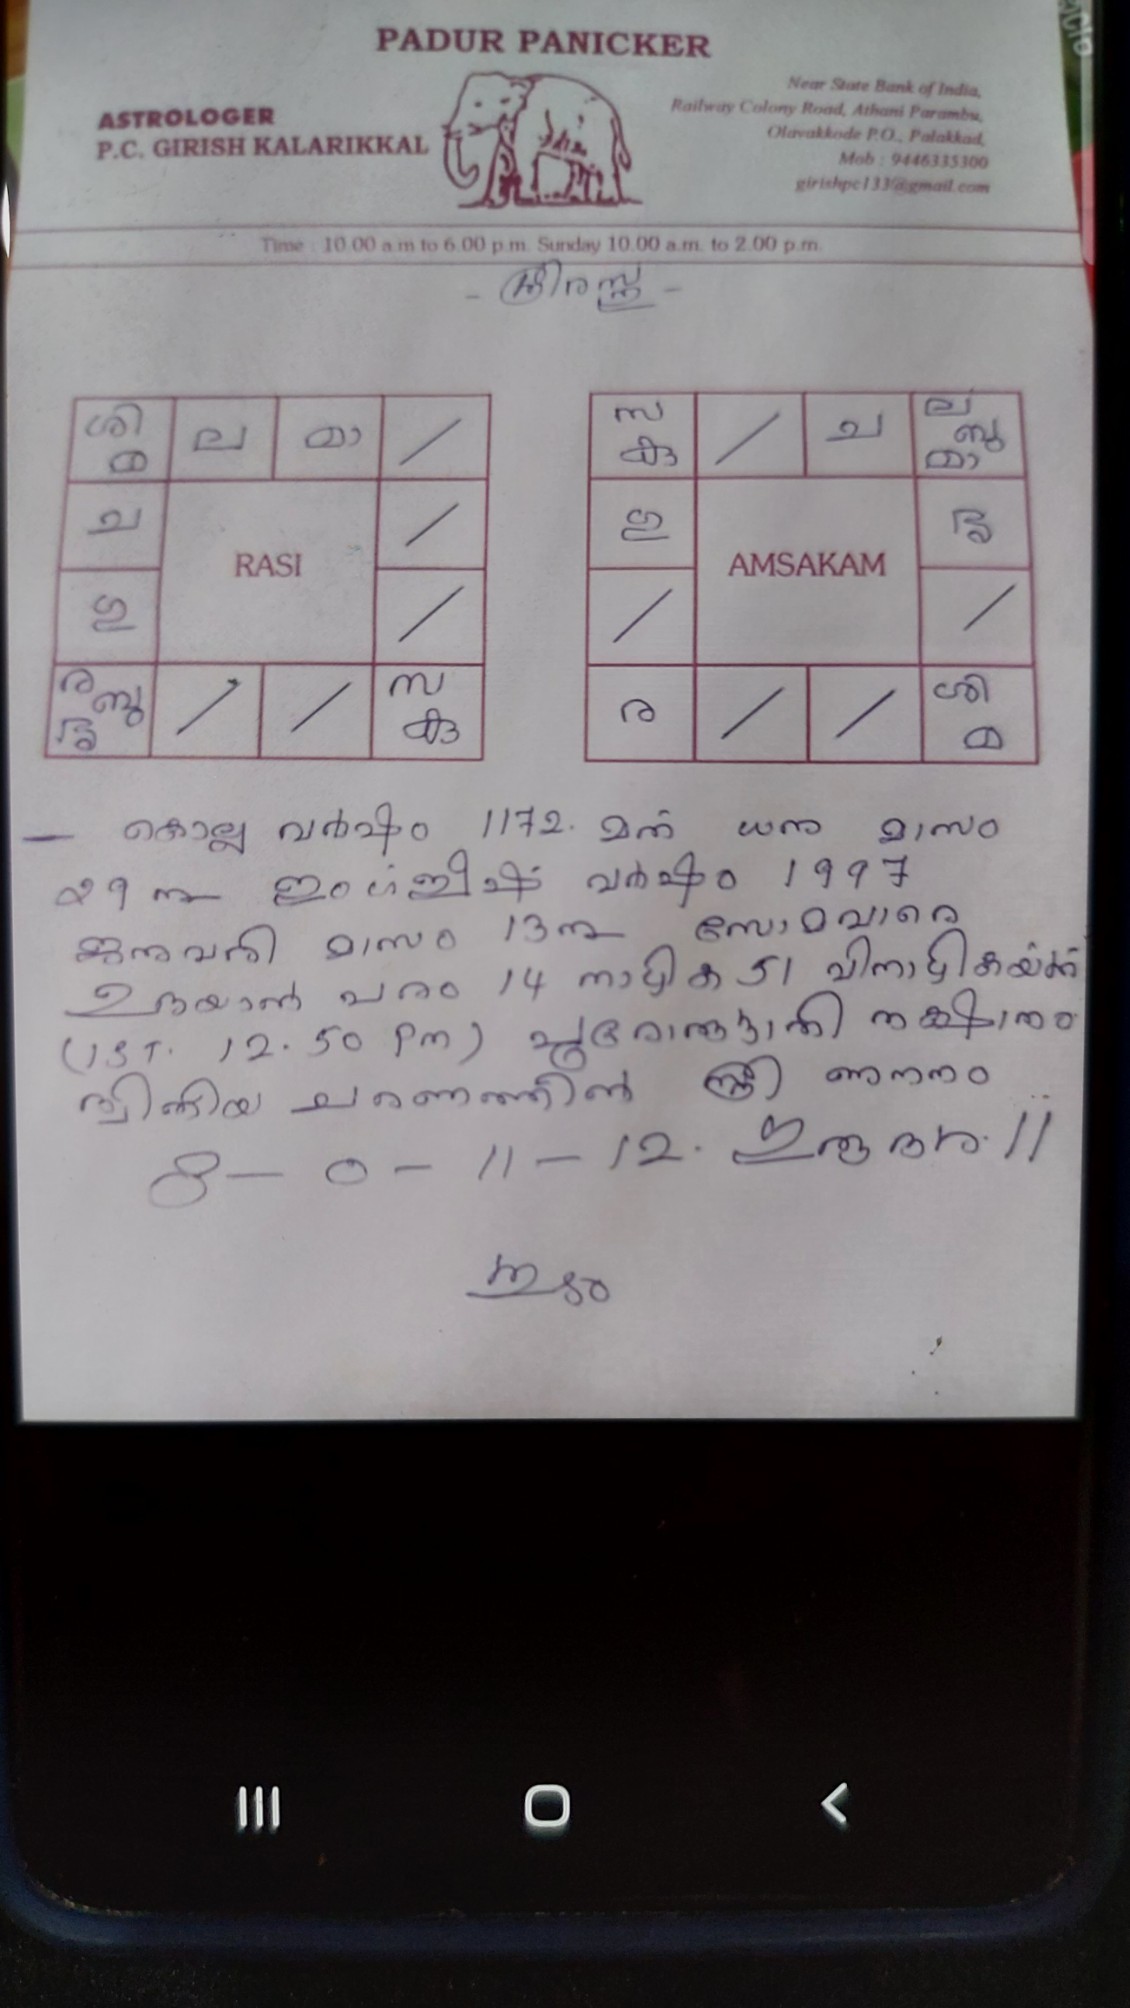 PADUR PANICKER
ASTROLOGER
P.C. GIRISH KALARIKKAL
Near State Bank of India,
Railway Colony Road, Athani Parambu,
Olavakkode P.O., Palakkad,
Mob : 9446335300
girishpc133@gmail.com
Time : 10.00 a.m to 6.00 p.m. Sunday 10.00 a.m. to 2.00 p.m.
- ശ്രീരസ്തു -
ശി മ ല മാ /
ച /
RASI
ഗു /
ര ബു / / സ കു
സ കു / ച ല ബു മാ
ഗു
AMSAKAM
/ /
ര / / ശി മ
— കൊല്ല വർഷം 1172. മത് ധനു മാസം
29 നു ഇംഗ്ലീഷ് വർഷം 1997
ജനുവരി മാസം 13നു സോമവാരെ
ഉദയാൽ പരം 14 നാഴിക 51 വിനാഴികയ്ക്ക്
(IST. 12.50 pm) പൂരുരുട്ടാതി നക്ഷത്രം
ദ്വിതീയ ചരണത്തിൽ സ്ത്രീ ജനനം
8 — 0 — 11 — 12.
ശുഭം